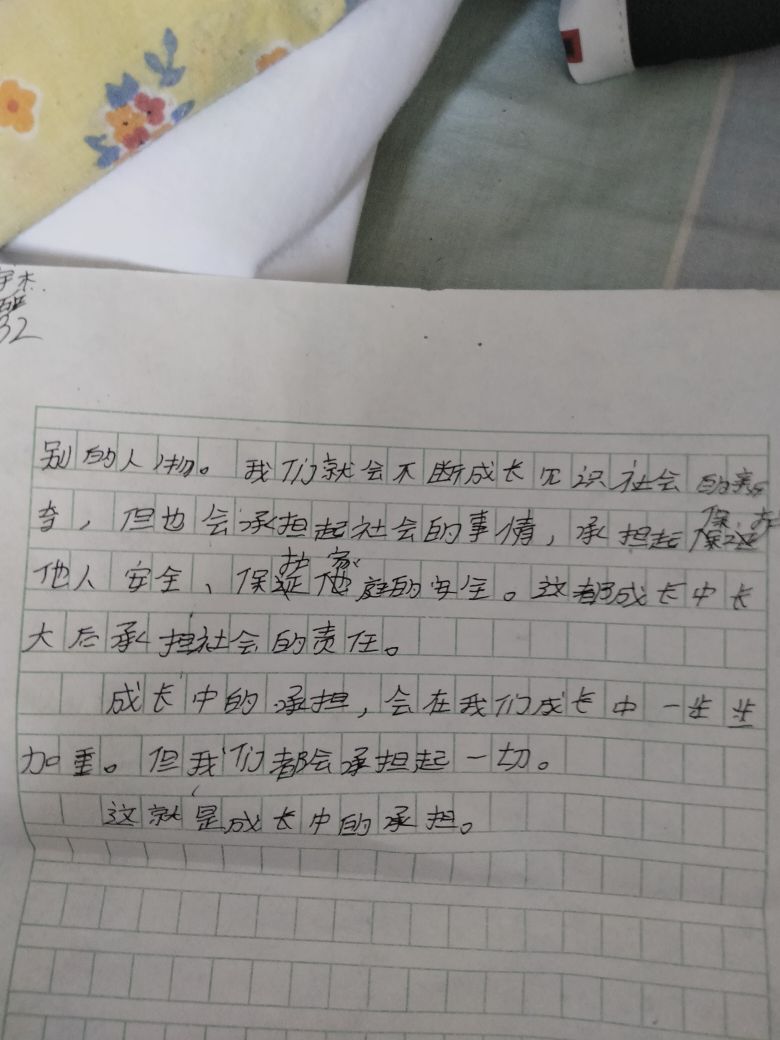 宇杰
32
别的人物。我们就会不断成长见识社会的新
奇，但也会承担起社会的事情，承担起保护
他人安全、保护家庭的安全。这都成长中长
大后承担社会的责任。
成长中的承担，会在我们成长中一步步
加重。但我们都会承担起一切。
这就是成长中的承担。